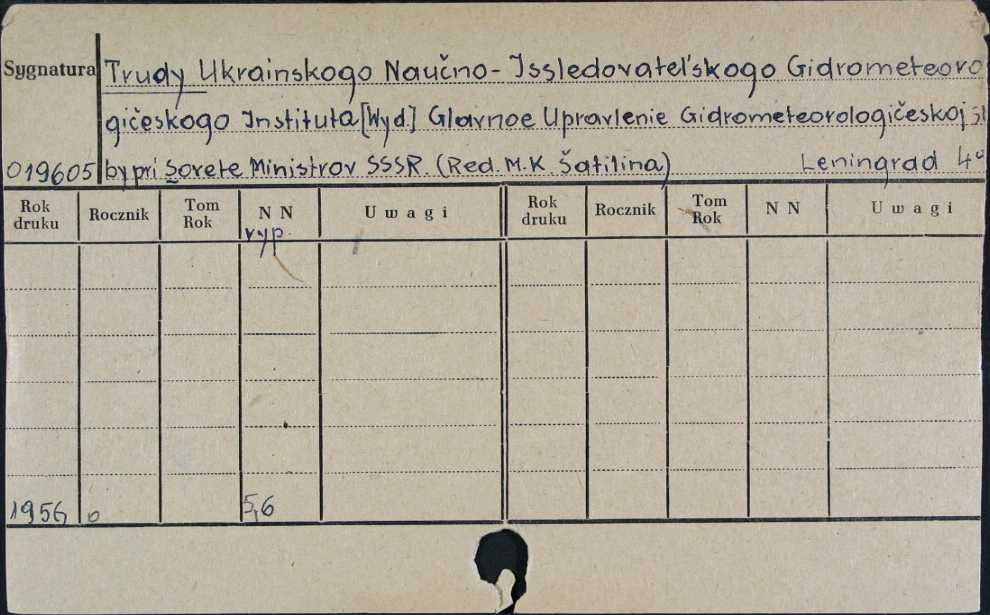 Sygnatura Trudy Ukrainskogo Naučno-Issledovatel'skogo Gidrometeoro
gičeskogo Instituta [Wyd.] Glavnoe Upravlenie Gidrometeorologičeskoj Sl
019605 by pri Sovete Ministrov SSSR. (Red. M.K. Šatilina) Leningrad 4°
Rok druku Rocznik Tom Rok NN Uwagi Rok druku Rocznik Tom Rok NN Uwagi
vyp.
1956 o 5,6